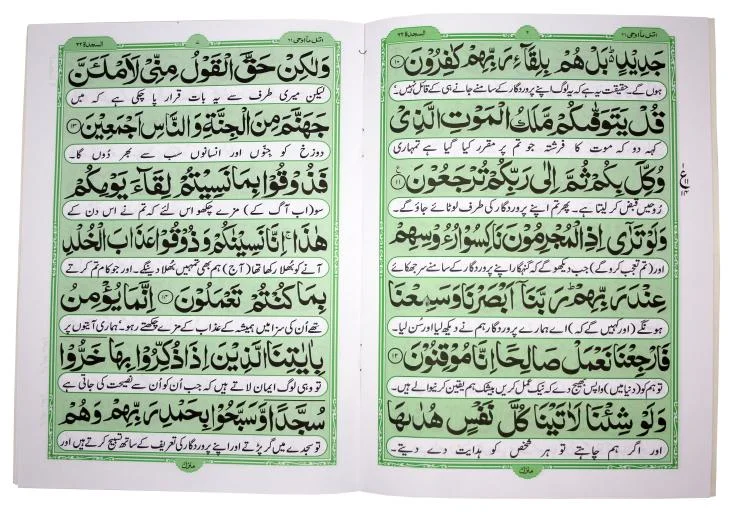 السجدة ٣٢
٦
اتل ما اوحی ٢١
جَدِيْدٍ ؕ بَلْ هُمْ بِلِقَآءِ رَبِّهِمْ كٰفِرُوْنَ ﴿١٠﴾
ہوں گے۔ حقیقت یہ ہے کہ یہ لوگ اپنے پروردگار کے سامنے جانے ہی کے قائل نہیں۔
قُلْ يَتَوَفّٰىكُمْ مَّلَكُ الْمَوْتِ الَّذِيْ
کہہ دو کہ موت کا فرشتہ جو تم پر مقرر کیا گیا ہے تمہاری
وُكِّلَ بِكُمْ ثُمَّ اِلٰى رَبِّكُمْ تُرْجَعُوْنَ ﴿١١﴾
روحیں قبض کر لیتا ہے۔ پھر تم اپنے پروردگار کی طرف لوٹائے جاؤ گے۔
وَلَوْ تَرٰٓى اِذِ الْمُجْرِمُوْنَ نَاكِسُوْا رُءُوْسِهِمْ
اور (تم تعجب کرو گے) جب دیکھو گے کہ گنہگار اپنے پروردگار کے سامنے سر جھکائے
عِنْدَ رَبِّهِمْ ؕ رَبَّنَآ اَبْصَرْنَا وَسَمِعْنَا
ہونگے (اور کہیں گے کہ) اے ہمارے پروردگار ہم نے دیکھ لیا اور سُن لیا۔
فَارْجِعْنَا نَعْمَلْ صَالِحًا اِنَّا مُوْقِنُوْنَ ﴿١٢﴾
تو ہم کو (دنیا میں) واپس بھیج دے کہ نیک عمل کریں بیشک ہم یقین کرنیوالے ہیں۔
وَلَوْ شِئْنَا لَاٰتَيْنَا كُلَّ نَفْسٍ هُدٰىهَا
اور اگر ہم چاہتے تو ہر شخص کو ہدایت دے دیتے۔
منزل
السجدة ٣٢
٧
اتل ما اوحی ٢١
وَلٰكِنْ حَقَّ الْقَوْلُ مِنِّيْ لَاَمْلَـَٔنَّ
لیکن میری طرف سے یہ بات قرار پا چکی ہے کہ میں
جَهَنَّمَ مِنَ الْجِنَّةِ وَالنَّاسِ اَجْمَعِيْنَ ﴿١٣﴾
دوزخ کو جنّوں اور انسانوں سب سے بھر دُوں گا۔
فَذُوْقُوْا بِمَا نَسِيْتُمْ لِقَآءَ يَوْمِكُمْ
سو (اب آگ کے) مزے چکھو اس لئے کہ تم نے اس دن کے
هٰذَا ۚ اِنَّا نَسِيْنٰكُمْ وَذُوْقُوْا عَذَابَ الْخُلْدِ
آنے کو بھلا رکھا تھا (آج) ہم بھی تمہیں بھلا دینگے۔ اور جو کام تم کرتے
بِمَا كُنْتُمْ تَعْمَلُوْنَ ﴿١٤﴾ اِنَّمَا يُؤْمِنُ
تھے اُن کی سزا میں ہمیشہ کے عذاب کے مزے چکھتے رہو۔ ہماری آیتوں پر
بِاٰيٰتِنَا الَّذِيْنَ اِذَا ذُكِّرُوْا بِهَا خَرُّوْا
تو وہی لوگ ایمان لاتے ہیں کہ جب اُن کو اُن سے نصیحت کی جاتی ہے
سُجَّدًا وَّسَبَّحُوْا بِحَمْدِ رَبِّهِمْ وَهُمْ
تو سجدے میں گر پڑتے اور اپنے پروردگار کی تعریف کے ساتھ تسبیح کرتے ہیں اور
منزل